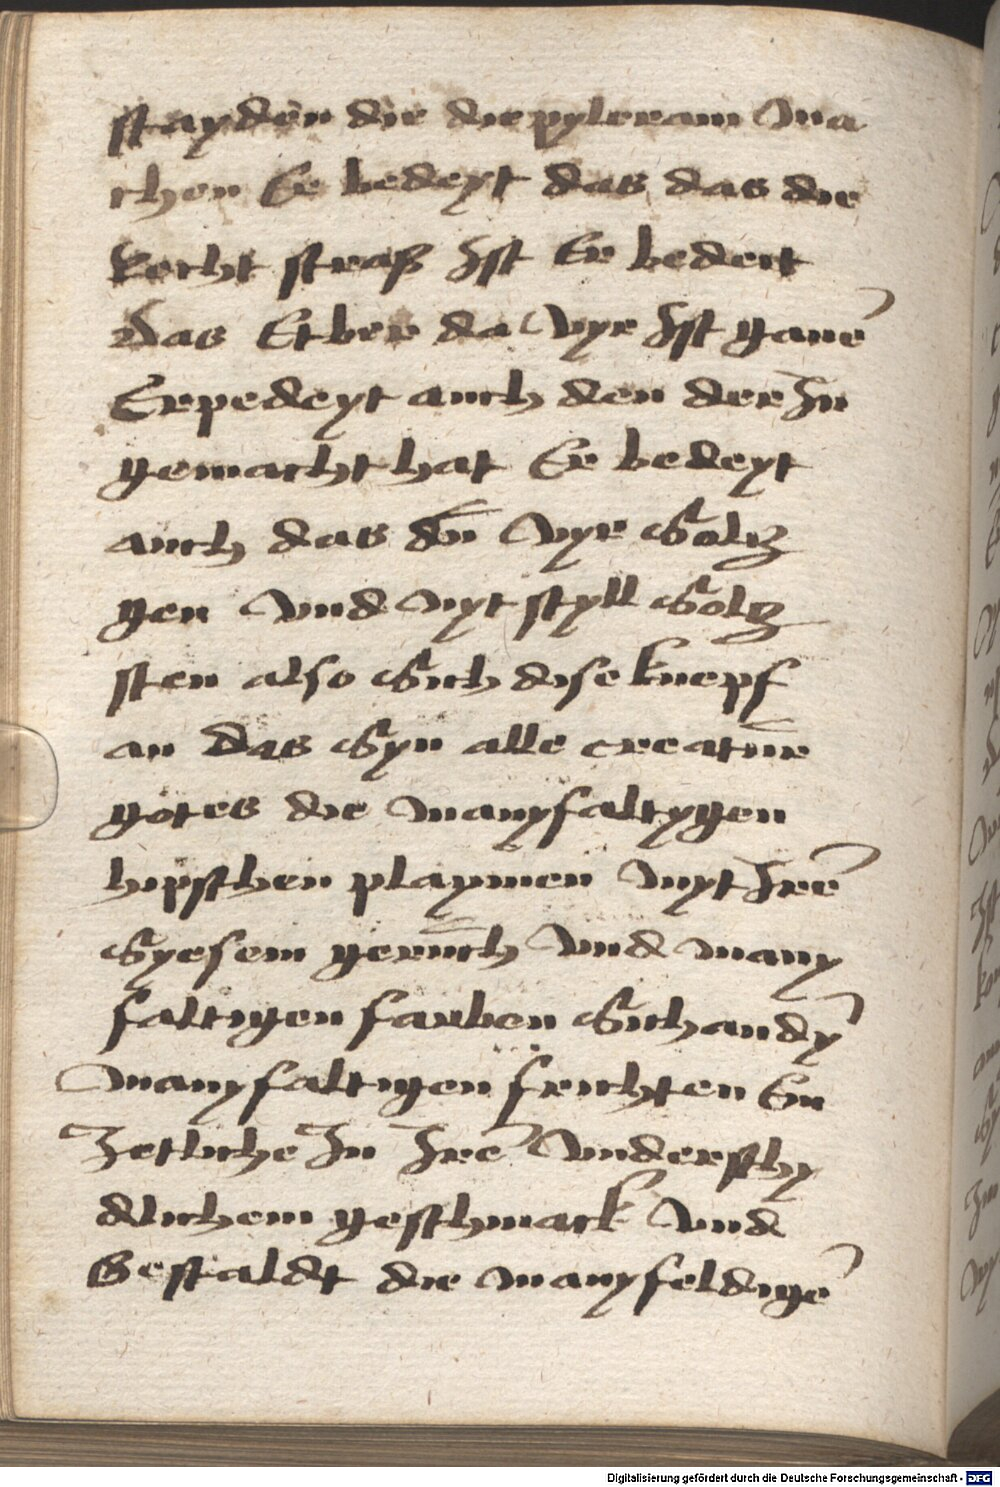 stayden die die pyleram ma
chen Er bedeyt das das die
Recht straß Ist Er bedeit
das Etber da wyr Ist ganē
Erpedeyt auch den der In
gemacht hat Er bedeyt
auch das du wyr Soltz
gen vnd nyt styll Soltz
sten also Sich dise knepf
an das Syn alle creatur
gotes die manyfaltygen
hipschen playmen myt Irē
Syesem geruch vnd many
faltigen farben Sich an dy
manyfaltigen fruchten Ein
Ietliche In Irē vnderschy
dlichem geschmack vnd
Gestaldt die manyfeldigē
Digitalisierung gefördert durch die Deutsche Forschungsgemeinschaft - DFG